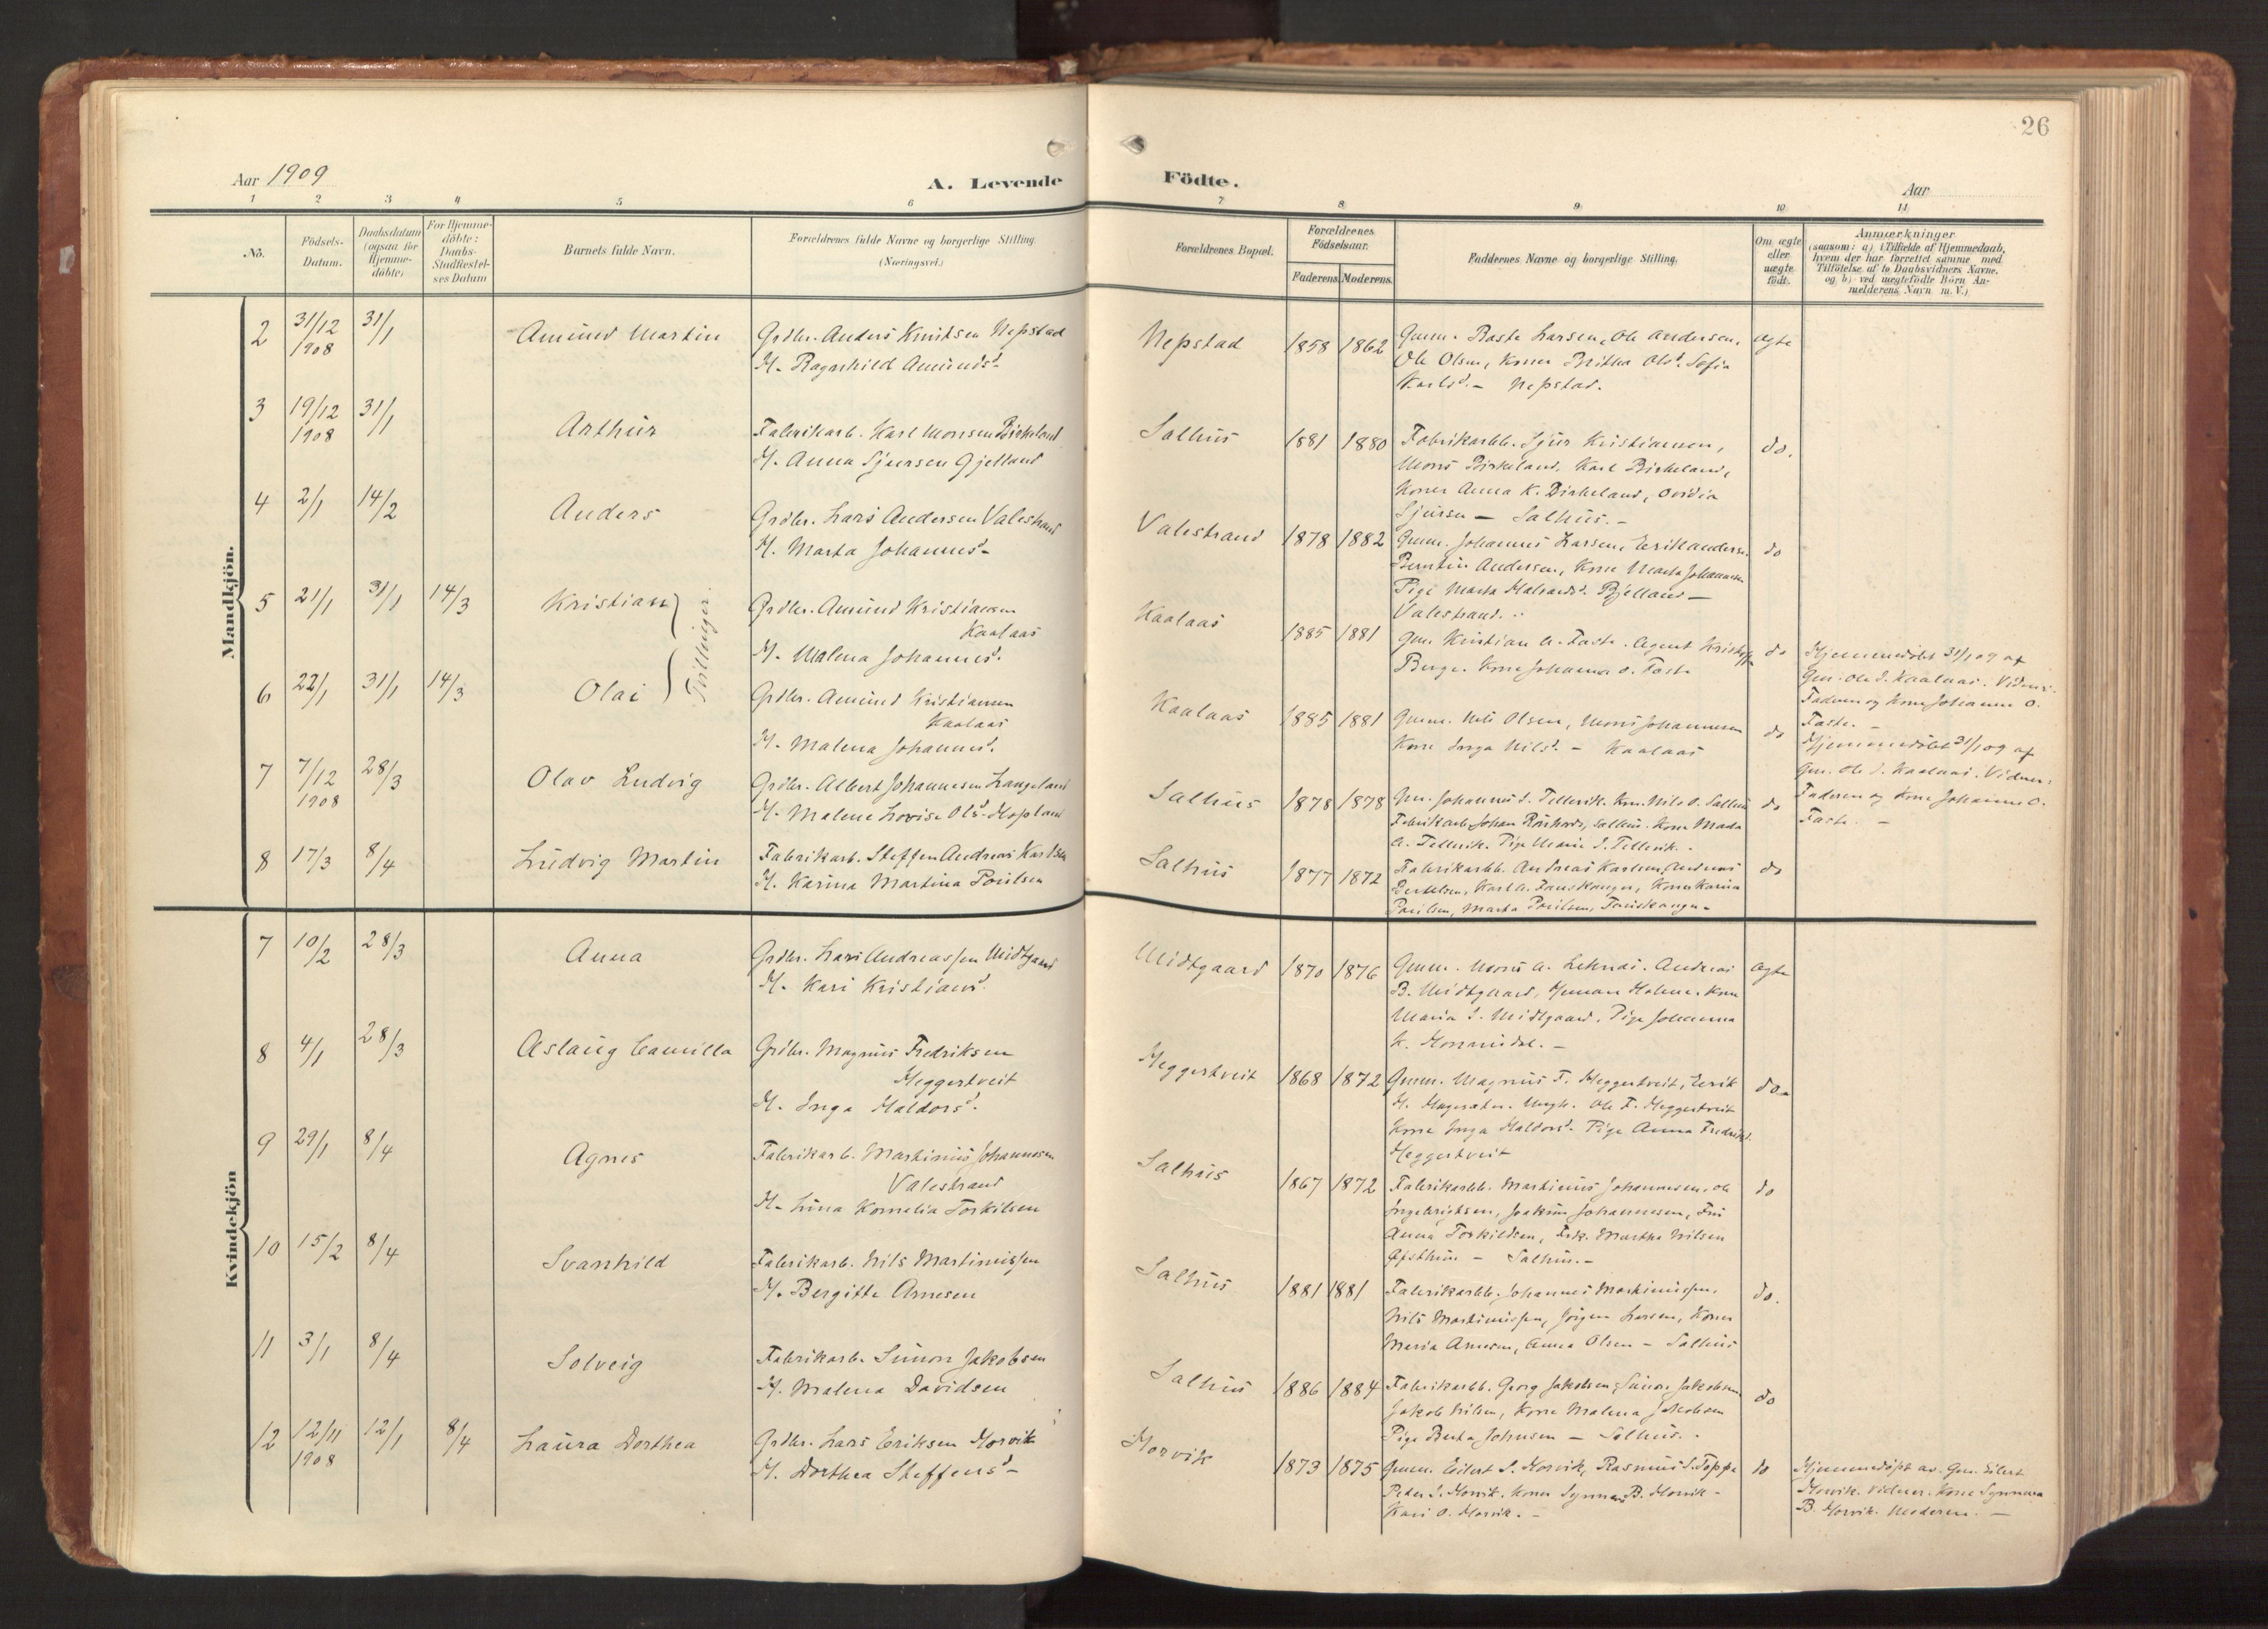 26
Aar 1909
A. Levende Födte.
Aar
1 2 3 4 5 6 7 8 9 10 11
No.
Födsels-Datum.
Daabsdatum (ogsaa for Hjemme-döbte)
For Hjemme-döbte: Daabs-Stadfæstel-ses Datum
Barnets fulde Navn.
Forældrenes fulde Navne og borgerlige Stilling. (Næringsvei.)
Forældrenes Bopæl.
Forældrenes Födselsaar.
Faderens. Moderens.
Faddernes Navne og borgerlige Stilling.
Om ægte eller uægte födt.
Anmærkninger
(saasom: a) i Tilfælde af Hjemmedaab,
hvem der har forrettet samme, med
Tilföielse af to Daabsvidners Navne,
og b) ved uægtefödte Börn An-
melderens Navn m. V.)
Mandkjön.
2 31/12 1908 31/1 Amund Martin
Grdbr. Anders Knutsen Nepstad
H. Ragnhild Amunds d.
Nepstad 1858 1862
Gmm. Baste Larsen, Ole Andersen,
Ole Olsen, Koner Britha Ols d. Sofia
Karls d. - Nepstad.
Ægte
3 19/12 1908 31/1 Arthur
Fabrikarb. Karl Monsen Birkeland
H. Anna Sjursen Gjelland
Salhus 1881 1880
Fabrikarbb. Sjur Kristiansen,
Mons Birkeland, Karl Birkeland,
Koner Anna K. Birkeland, Ovidia
Sjursen - Salhus. -
do.
4 2/1 14/2 Anders
Grdbr. Lars Andersen Valestrand
H. Marta Johannes d. -
Valestrand 1878 1882
Gmm. Johannes Larsen, Erik Anders.
Berntin Andersen, Kone Marta Johannesen
Pige Marta Halvards d. Bjelland -
Valestrand. -
do
5 21/1 31/1 14/3 Kristian
Tvillinger.
Grdbr. Amund Kristiansen
Kaalaas
H. Malena Johannes d.
Kaalaas 1885 1881
Gm. Kristian A. Faste. Agent Kristoffer
Berge. Kone Johanna O. Faste
do
Hjemmedöbt 31/1 09 af
Gm. Ole J. Kaalaas. Vidner:
Faderen og Kone Johanne O.
Faste. -
6 22/1 31/1 14/3 Olai
Grdbr. Amund Kristiansen
Kaalaas
H. Malena Johannes d.
Kaalaas 1885 1881
Gmm. Nils Olsen, Mons Johannesen
Kone Inga Nils d. - Kaalaas
do
Hjemmedöbt 31/1 09 af
Gm. Ole J. Kaalaas. Vidner:
Faderen og Kone Johanne O.
Faste. -
7 7/12 1908 28/3 Olav Ludvig
Grdbr. Albert Johannesen Langeland
H. Malene Lovise Ols d. Hopland
Salhus 1878 1878
Gm. Johannes J. Tellevik. Nils O. Salhus
Fabrikarb. Johan salhus. Kone Marta
A. Tellevik. Pige Marie J. Tellevik. -
do
8 17/3 8/4 Ludvig Martin
Fabrikarb. Steffen Andreas Karlsen
H. Karina Martina Poulsen
Salhus 1877 1872
Fabrikarbb. Andreas Karlsen, Andreas
Bertelsen, Karl A. Fauskanger, Koner Karina
Poulsen, Marta Poulsen, Fauskanger -
do
Kvindekjön
7 10/2 28/3 Anna
Grdbr. Lars Andreassen Midtgaard
H. Kari Kristians d.
Midtgaard 1870 1876
Gmm. Mons A. Leknes. Andreas
B. Midtgaard, Holme. Kone
Maria J. Midtgaard. Pige Johanna
K.
Ægte
8 4/1 28/3 Aslaug Camilla
Grdbr. Magnus Fredriksen
Heggertveit
H. Inga Haldors d.
Heggertveit 1868 1872
Gmm. Magnus F. Heggertveit, Eerik
H. Ungk. Ole F. Heggertveit
Kone Inga Haldors d. Pige Anna Fredriks d.
Heggertveit
do -
9 29/1 8/4 Agnes
Fabrikarb. Martinus Johannesen
Valestrand
H. Lina Kornelia Torkilsen
Salhus 1867 1872
Fabrikarbb. Martinus Johannesen, Ole
Ingebrigtsen, Joakim Johannesen, Fru
Anna Torkildsen, Frk. Martha Nilsen
- Salhus. -
do
10 15/2 8/4 Svanhild
Fabrikarb. Nils Martinussen
H. Bergitte Arnesen
Salhus 1881 1881
Fabrikarbb. Johannes Martinussen,
Nils Martinussen, Jörgen Larsen, Koner
Maria Arnesen, Anna Olsen - Salhus
do.
11 3/1 8/4 Solveig
Fabrikarb. Simon Jakobsen
H. Malena Davidsen
Salhus 1886 1884
Fabrikarbb. Georg Jakobsen, Simon Jakobsen
Jakob Nilsen, Kone Malena Jakobsen
Pige Berta Johnsen - Salhus. -
do
12 12/11 1908 12/1 8/4 Laura Dorthea
Grdbr. Lars Eriksen Horvik
H. Dorthea Steffens d. -
Horvik 1873 1875
Gmm. Eilert S. Horvik, Rasmus S. Toppe
Peder S. Horvik. Koner Synneva B. Horvik -
Kari O. Horvik. -
do
Hjemmedöpt av. Gm. Eilert
Horvik. Vidner. Kone Synneva
B. Horvik. Moderen. -